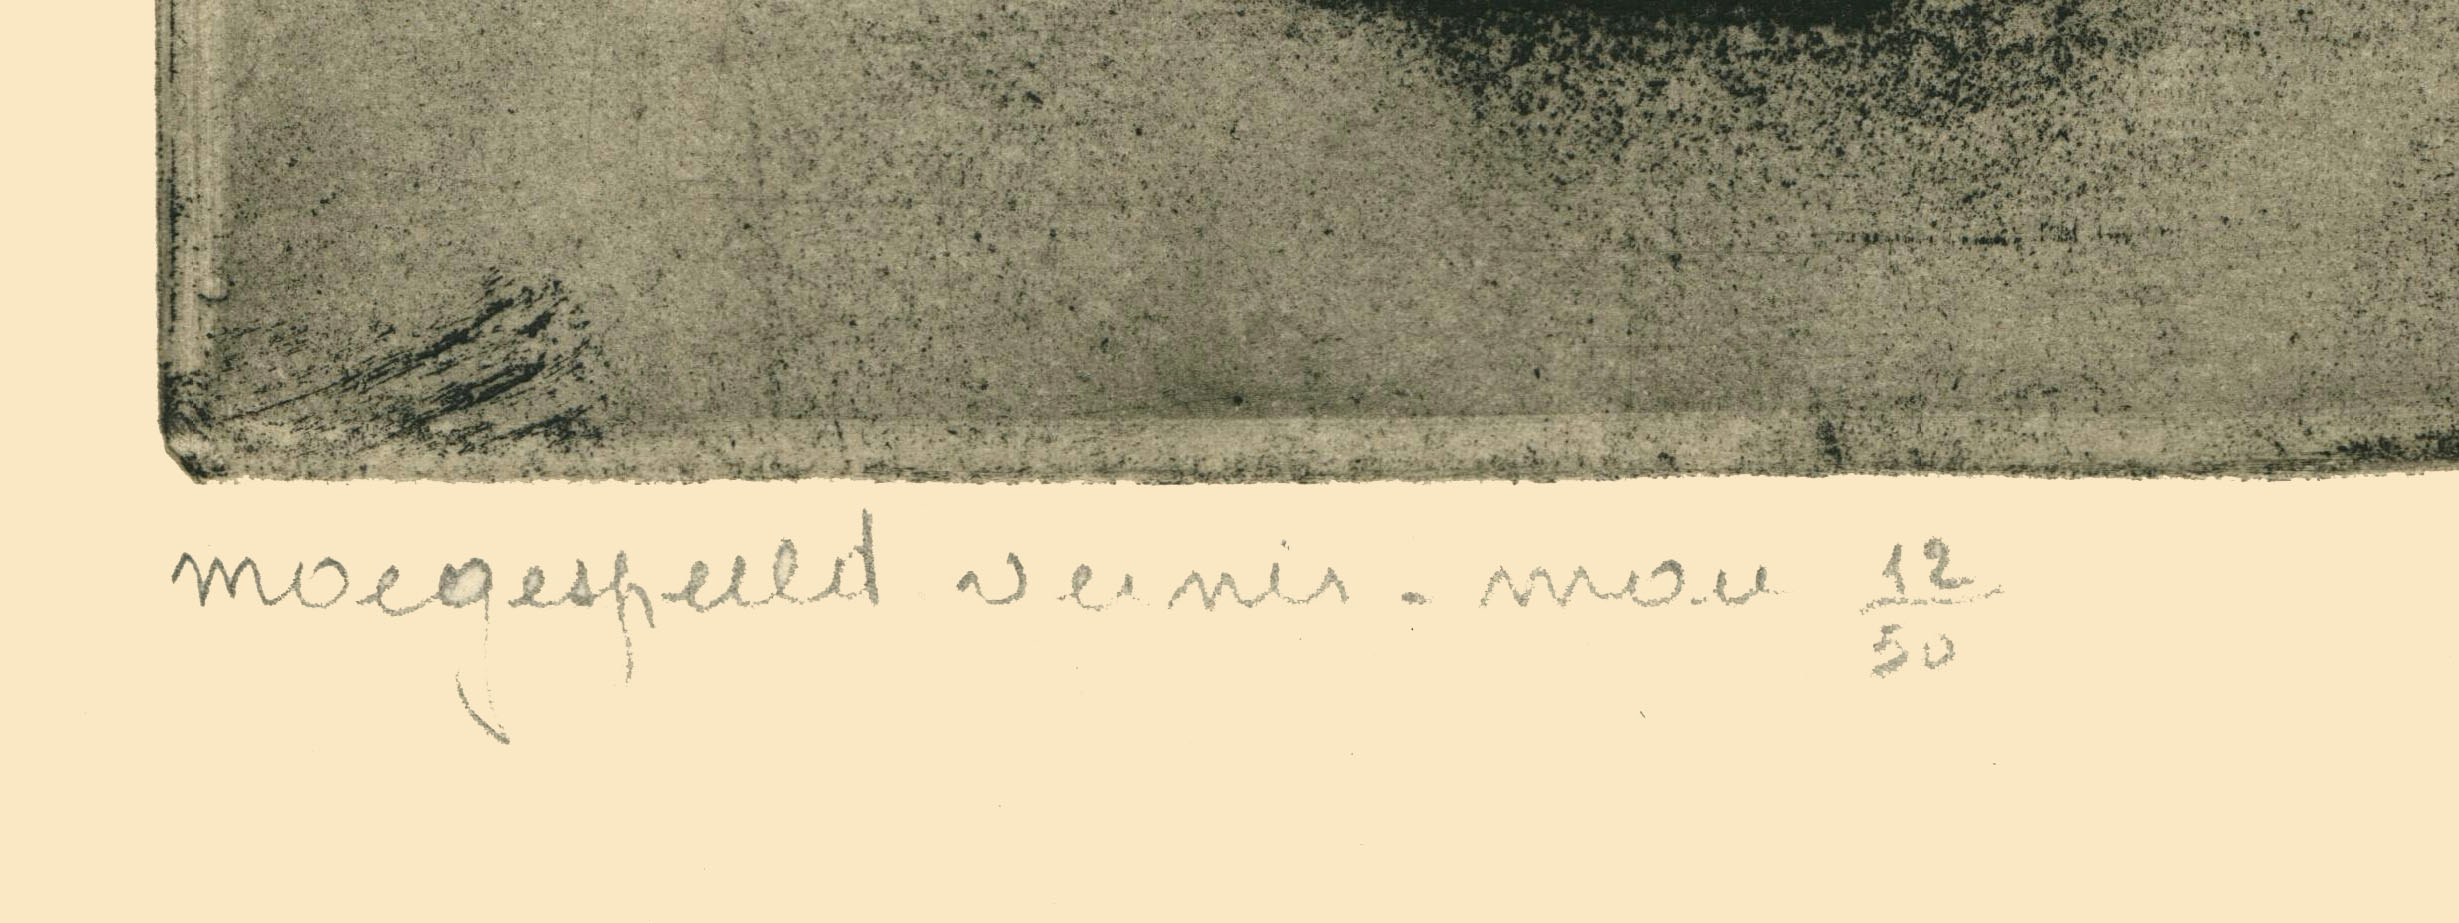 moegespeeld vernis. mou 12/50